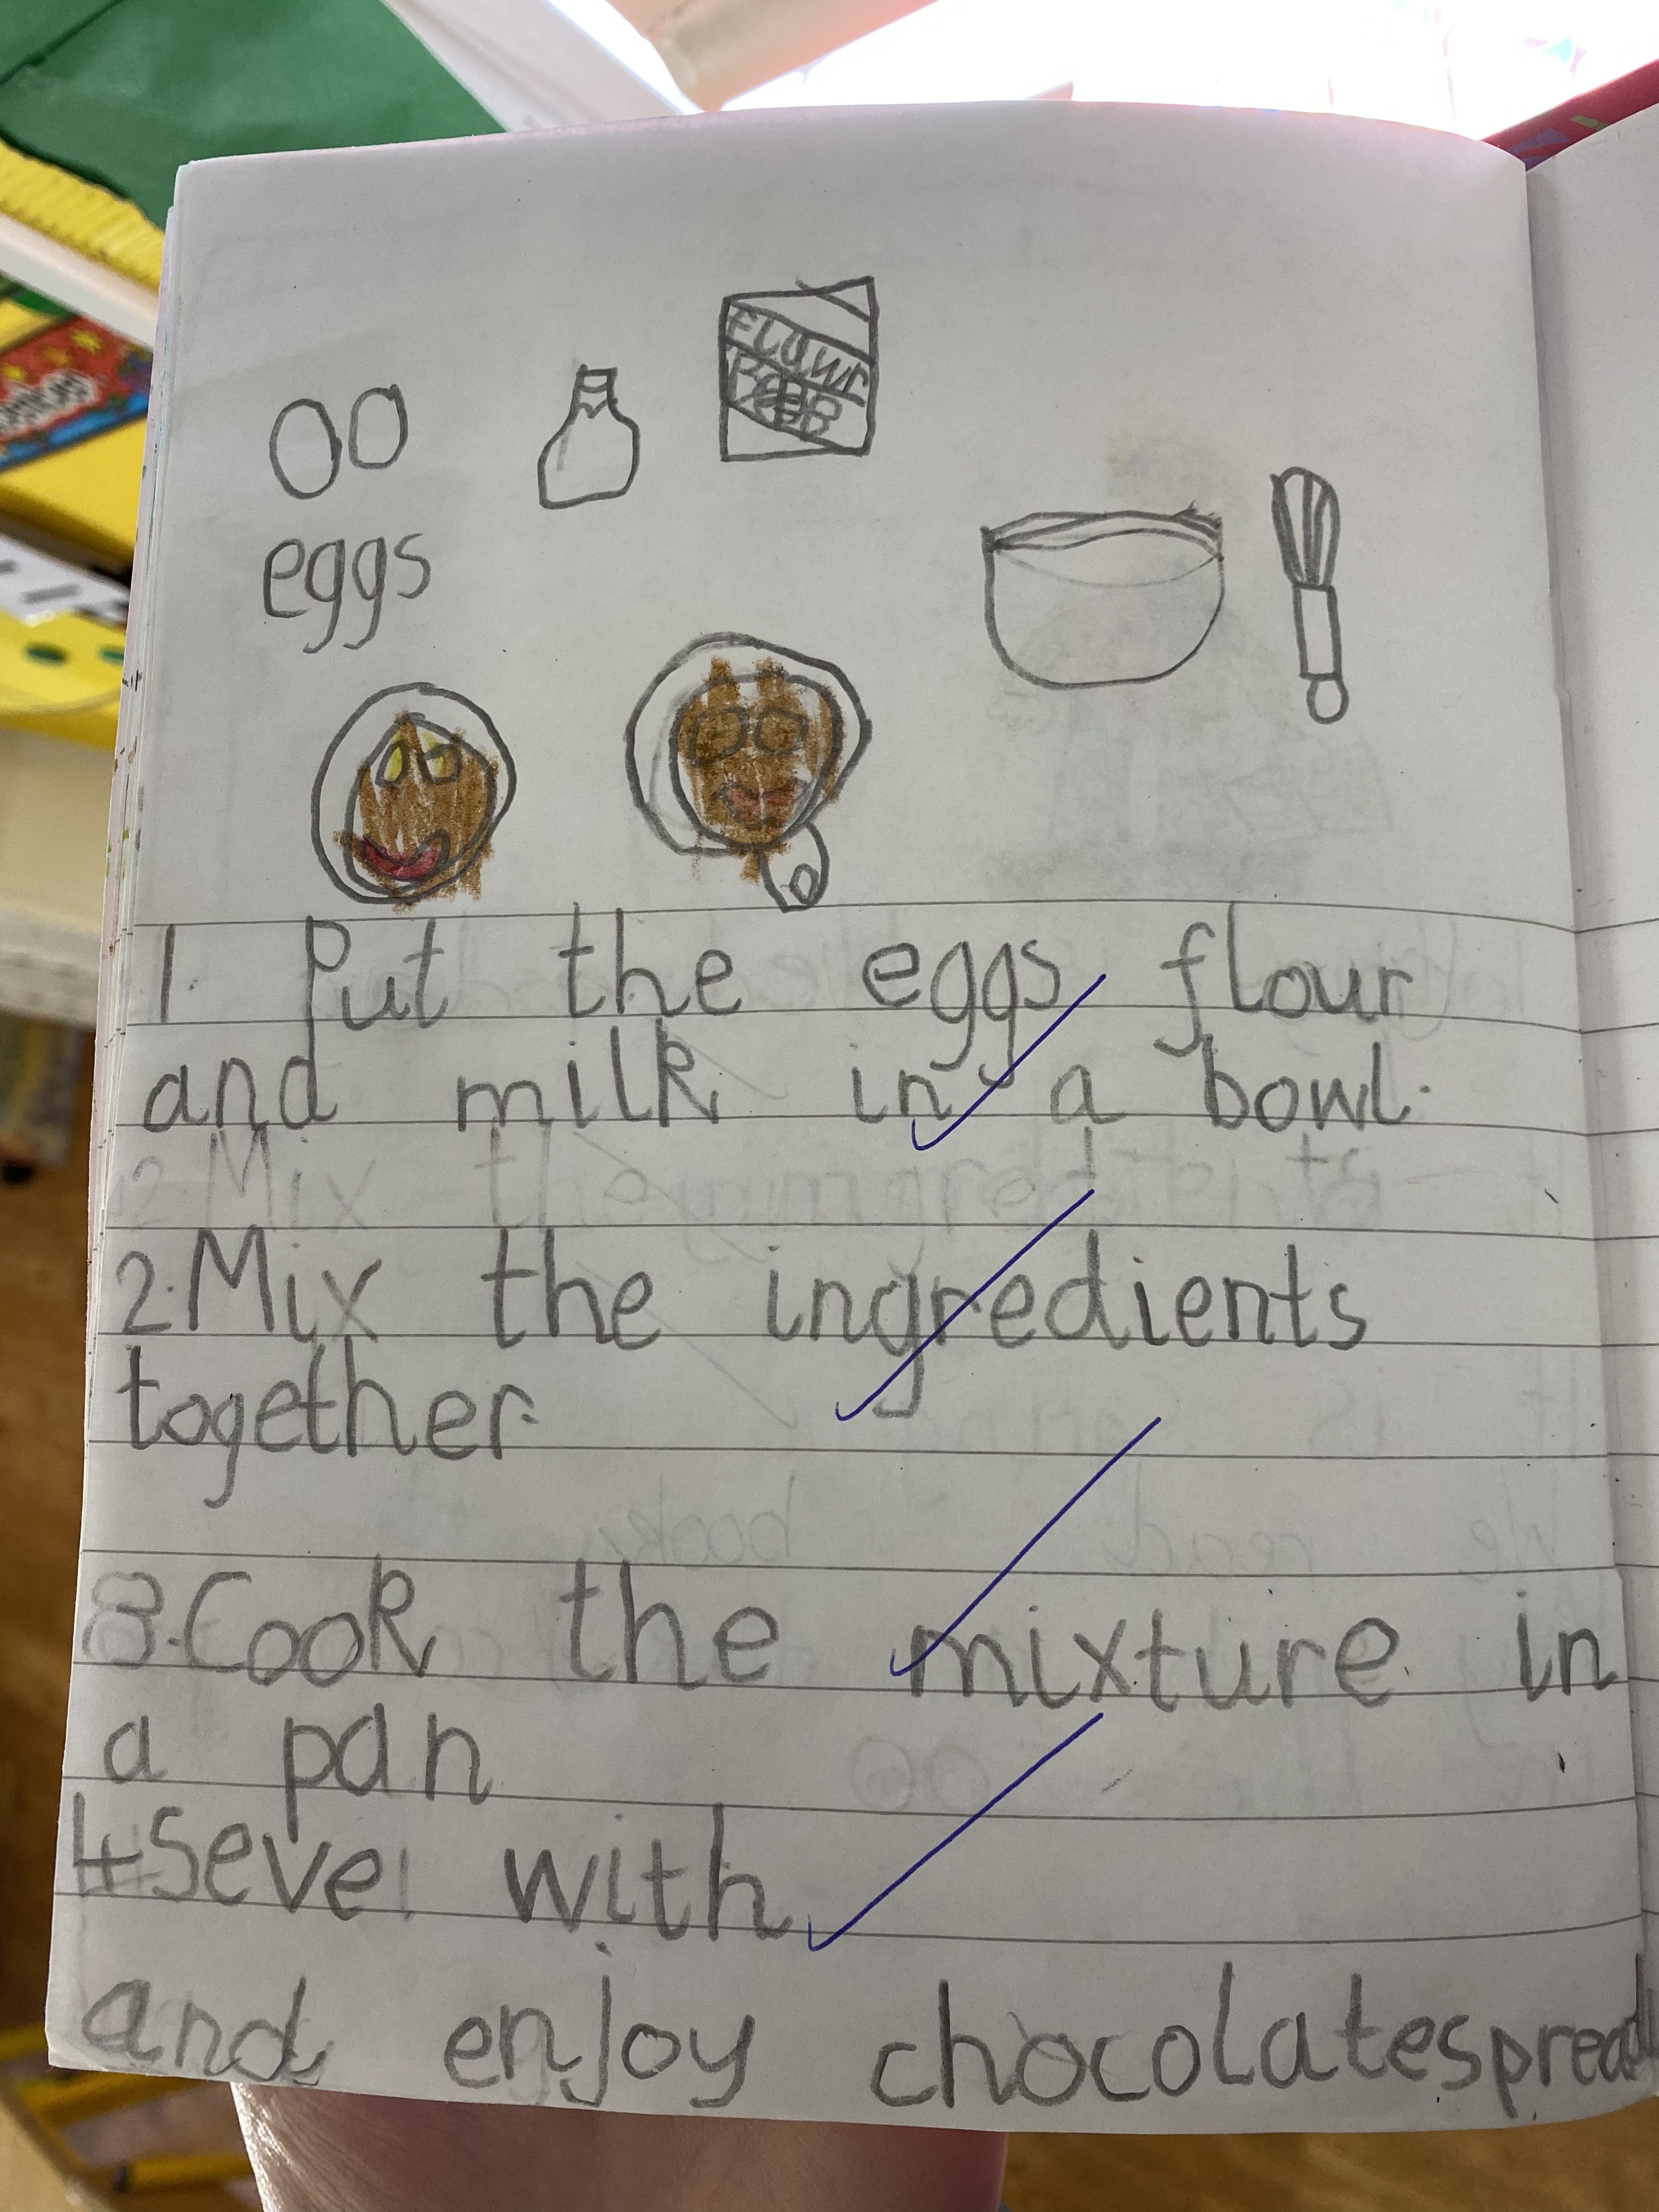 FLawr
eggs
1. Put the eggs flour
and milk in a bowl.
2. Mix the ingredients
together.
3. Cook the mixture in
a pan
4 Seve with
and enjoy chocolatespread